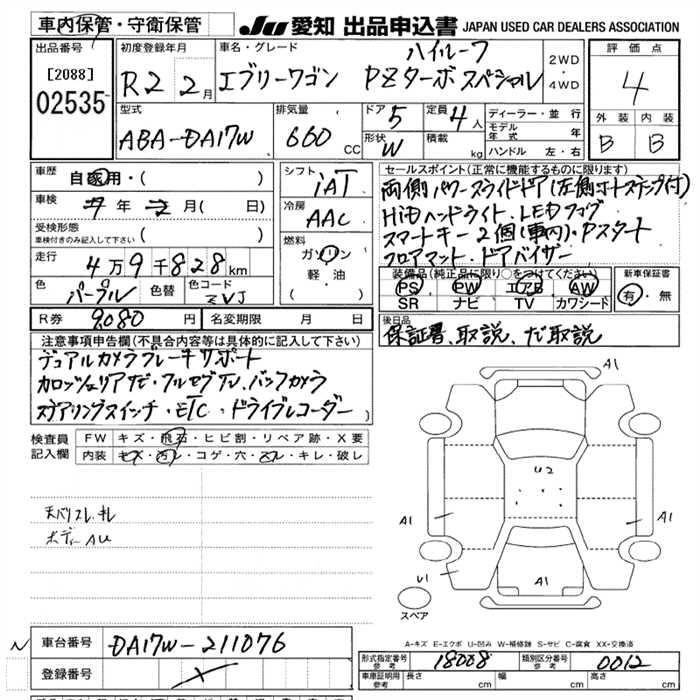 車内保管・守衛保管
JU 愛知 出品申込書 JAPAN USED CAR DEALERS ASSOCIATION
出品番号 初度登録年月 車名・グレード 評価点
[2088] ハイルーフ 2WD
02535 R2 2月 エブリーワゴン PZターボスペシャル 4WD 4
型式 排気量 ドア 5 定員 4人 ディーラー・並行 外装 内装
ABA-DA17W 660 CC 形状 W 積載 kg モデル年式 年 B B
ハンドル 左・右
車歴 自家用・( ) シフト iAT セールスポイント(正常に機能するものに限ります)
車検 年 月( 日) 冷房 AAC 両側パワースライドドア(左側オートステップ付)
受検形態 HiDヘッドライト、LEDフォグ
車検付きのみ記入して下さい ( ) 燃料 スマートキー2個(車内)・Pスタート
走行 4万9千828km ガソリン フロアマット・ドアバイザー
軽油 装備品(純正品に限り○をつけてください) 新車保証書
色 パープル 色替 色コード ZVJ ( ) PS PW エアB AW 有・無
SR ナビ TV カワシード
R券 9,080円 名変期限 月 日 後日品
保証書、取説、ナビ取説
注意事項申告欄(不具合内容等は具体的に記入して下さい)
デュアルカメラブレーキサポート
カロッツェリアナビ・フルセグTV、バックカメラ
ステアリングスイッチ・ETC・ドライブレコーダー
検査員 FW キズ・飛石・ヒビ割・リペア跡・X要
記入欄 内装 キズ・汚レ・コゲ・穴・スレ・キレ・破レ
A1
U2
天バリスレ、キレ
ボディーAU
A1 A1
U1 A1
スペア
A-キズ E-エクボ U-凹み W-補修跡 S-サビ C-腐食 XX-交換済
N 車台番号 DA17W-211076
形式指定番号 参考 18008 類別区分番号 参考 0012
登録番号 車車証明用 参考 長さ cm 幅 cm 高さ cm